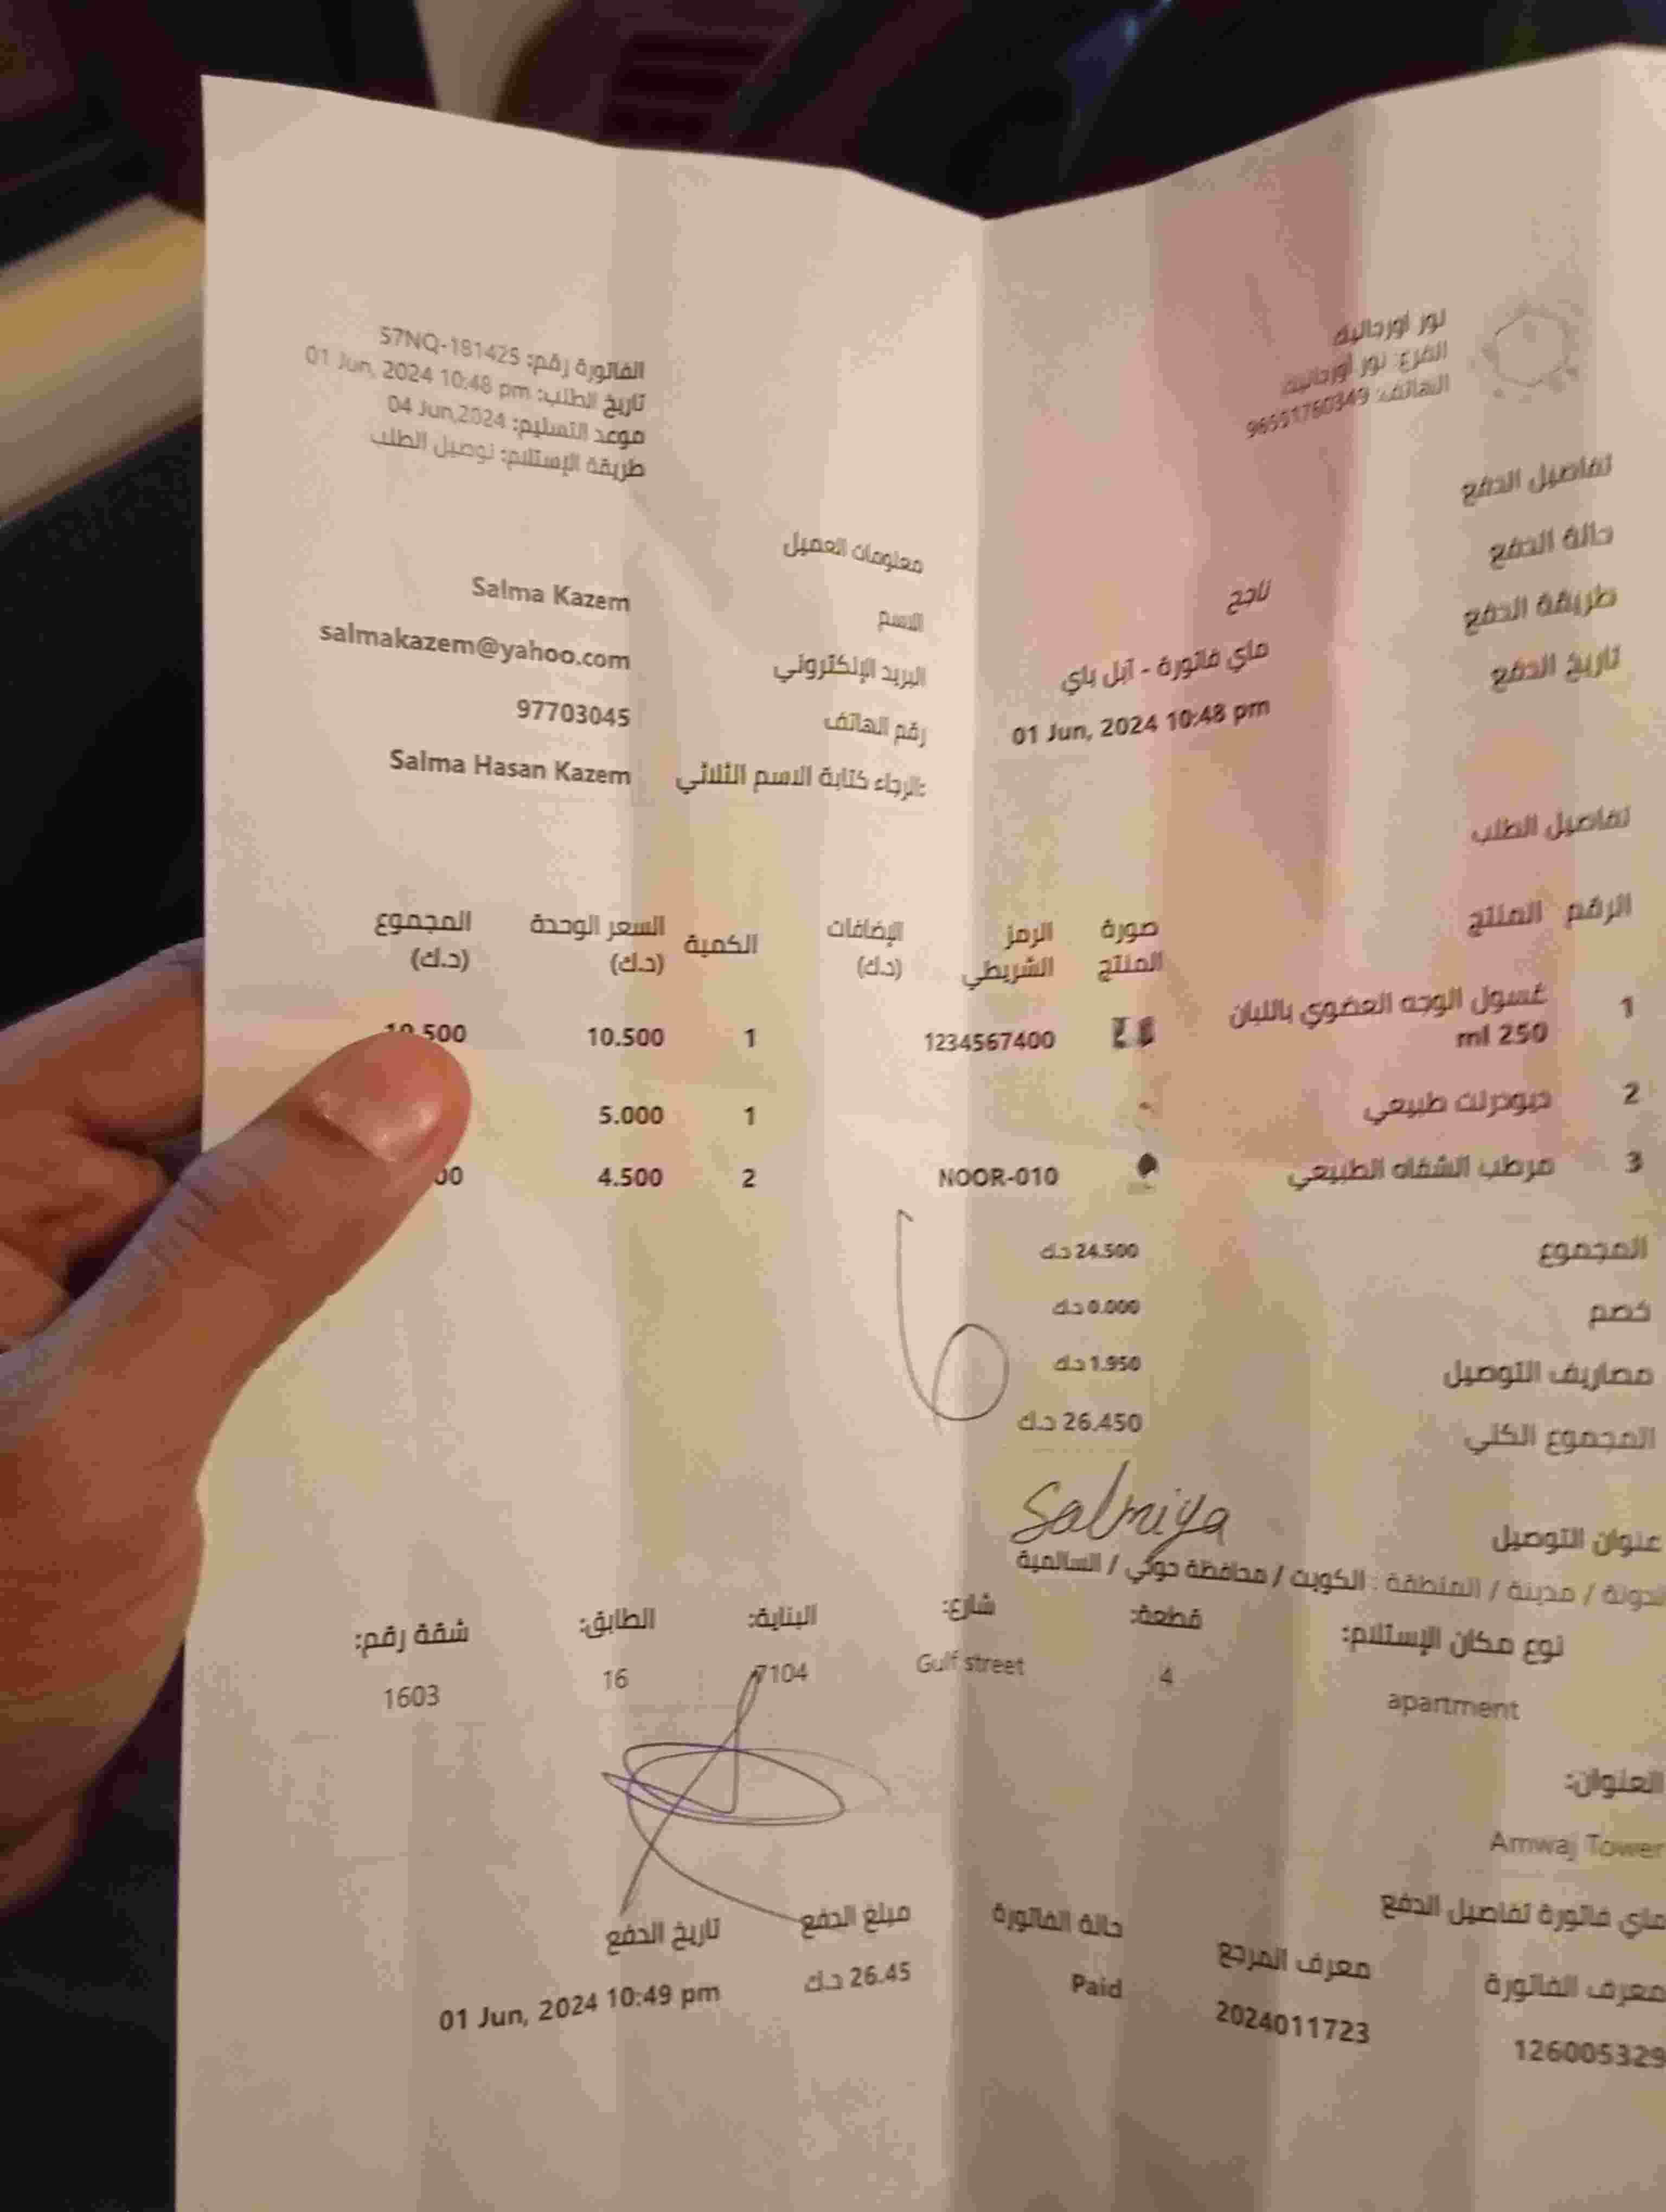 نور اورجانيك
الفرع: نور اورجانيك
الهاتف: 96551760349
الفاتورة رقم: 57NQ-181425
تاريخ الطلب: 01 Jun, 2024 10:48 pm
موعد التسليم: 04 Jun,2024
طريقة الإستلام: توصيل الطلب
تفاصيل الدفع
حالة الدفع ناجح
طريقة الدفع ماي فاتورة - آبل باي
تاريخ الدفع 01 Jun, 2024 10:48 pm
معلومات العميل
الاسم Salma Kazem
البريد الإلكتروني salmakazem@yahoo.com
رقم الهاتف 97703045
الرجاء كتابة الاسم الثلاثي: Salma Hasan Kazem
تفاصيل الطلب
الرقم المنتج صورة المنتج الرمز الشريطي الإضافات (د.ك) الكمية السعر الوحدة (د.ك) المجموع (د.ك)
1 غسول الوجه العضوي باللبان 1234567400 1 10.500 10.500
250 ml
2 ديودرنت طبيعي 1 5.000
3 مرطب الشفاه الطبيعي NOOR-010 2 4.500
المجموع 24.500 د.ك
خصم 0.000 د.ك
مصاريف التوصيل 1.950 د.ك
المجموع الكلي 26.450 د.ك
Salmiya
عنوان التوصيل
الدولة / مدينة / المنطقة : الكويت / محافظة حولي / السالمية
نوع مكان الإستلام: قطعة: شارع: البناية: الطابق: شقة رقم:
apartment 4 Gulf street 7104 16 1603
العنوان:
Amwaj Tower
ماي فاتورة تفاصيل الدفع
معرف الفاتورة معرف المرجع حالة الفاتورة مبلغ الدفع تاريخ الدفع
126005329 2024011723 Paid 26.45 د.ك 01 Jun, 2024 10:49 pm